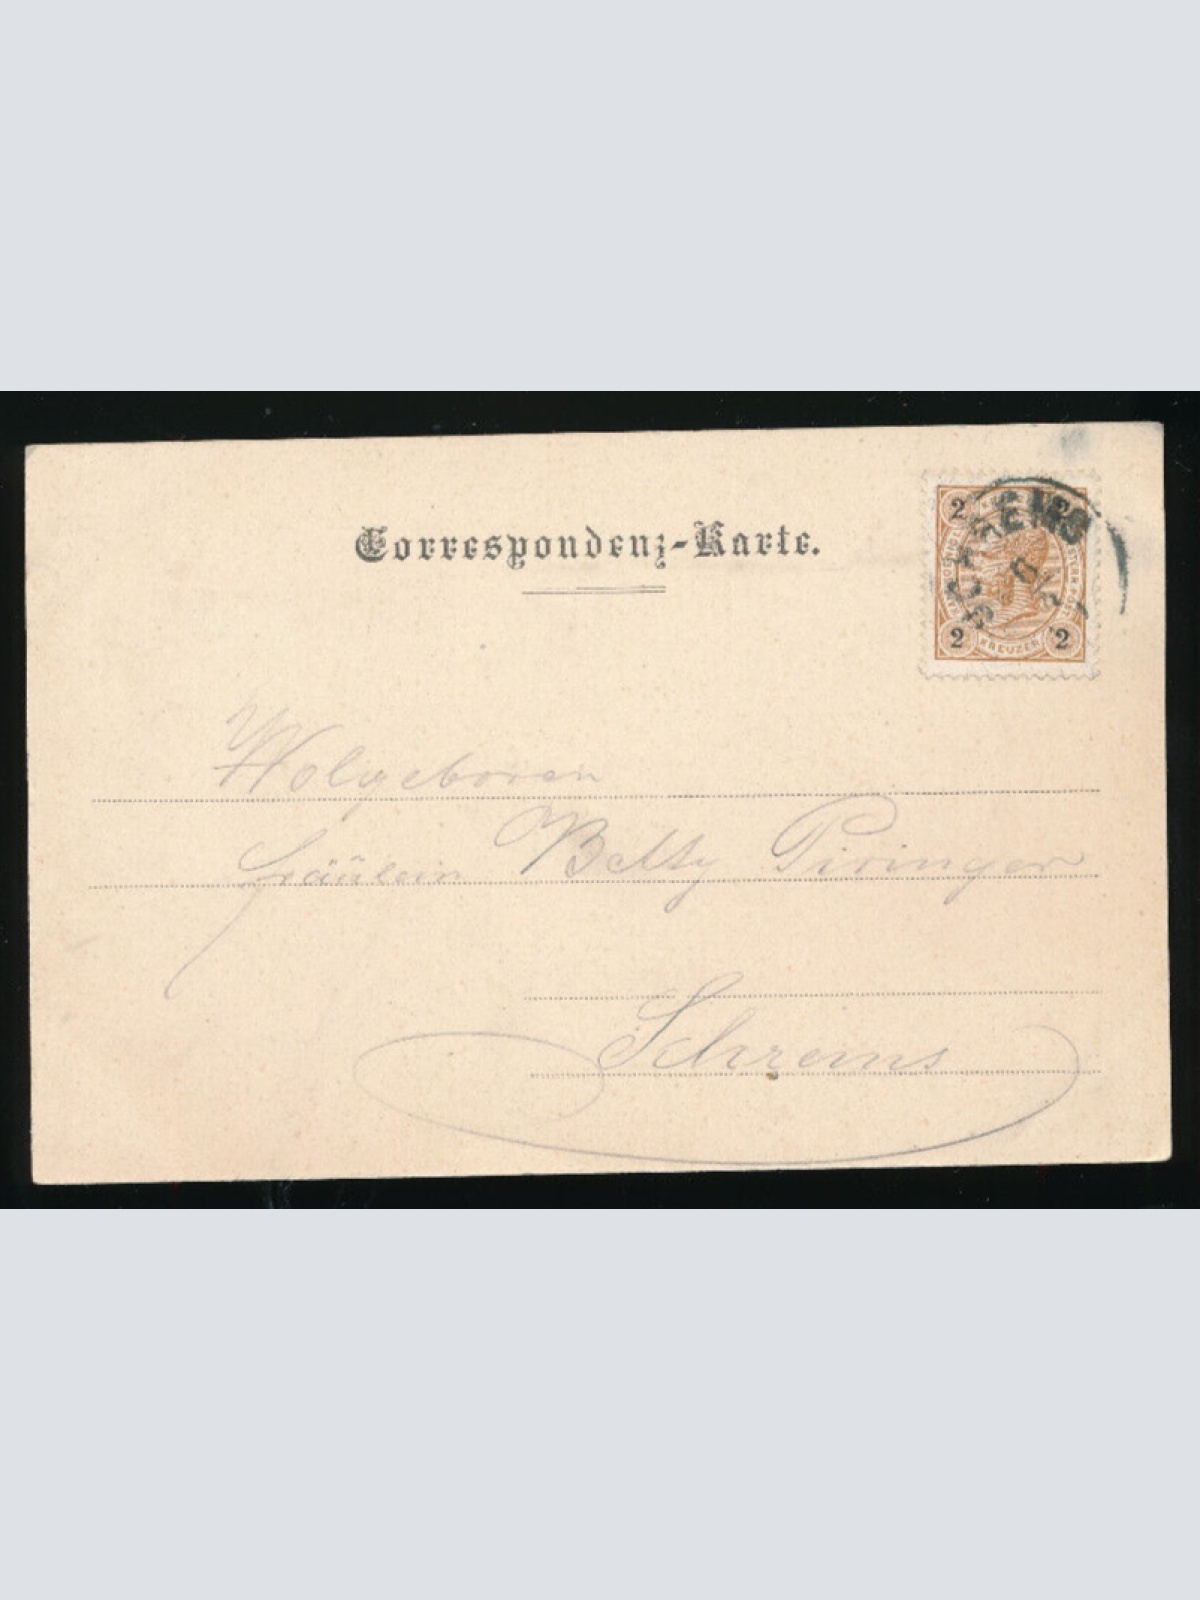 Correspondenz-Karte.
2 2
SCHREMS
2 KREUZER 2
Wolgeboren
Fräulein Betty Piringer
Schrems